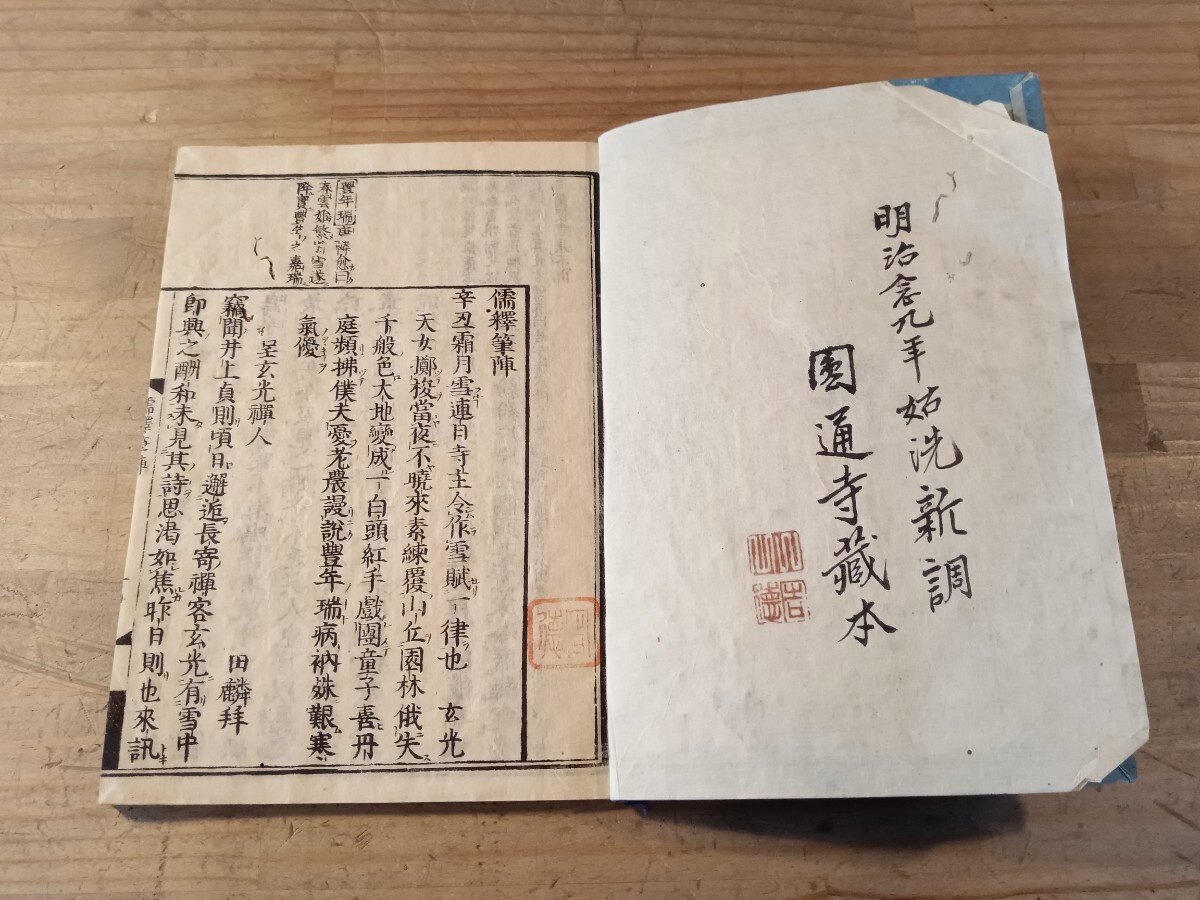 明治念九年姑洗新調
圓通寺藏本
豐年瑞
春雲
儒釋筆陣
辛丑霜月雪連日寺主令作雪賦一律也 玄光
天女擲梭當夜不曉來素練覆山丘園林俄失
千般色大地變成一白頭紅手戲團童子喜丹
庭頻拂僕夫憂老農謾說豐年瑞病衲殊艱寒
氣優
呈玄光禪人 田麟拜
竊聞井上貞則頃日邂逅長寄禪客玄光有雪中
即興之酬和未見其詩思渴如焦昨日則也來訊